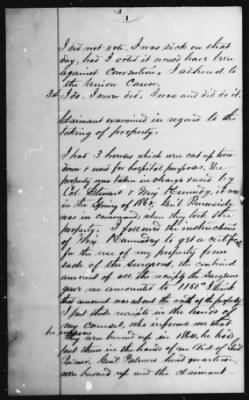 I did not vote. I was sick on that
day, had I voted it would have been
against Cecession, I adhered to
the Union Cause.
34 I do. I never did. I was and did do it.
Claimant examined in regard to the
taking of property.
I had 3 houses which were cut up torn
down & used for hospital purposes. The
property was taken in charge first by
Col. Stewart & Maj Kennedy, it was
in the Spring of 186 Genl Burnside
was in command, when they took the
property. I followed the instructions
of Maj Kennedy to get a certificate
for the use of my property from
each of the Surgeons, the entire
amount of all the receipts the Surgeons
gave me amounted to 1180 I think
this amount was about the worth of the property
I put these receipts in the hands of
my counsel, who informs me that
he supposes they were burned up in 1864, he had
put them in the hands of an Aid of Genl
Palmer. Genl Palmers head quarters
were burned up and the claimant